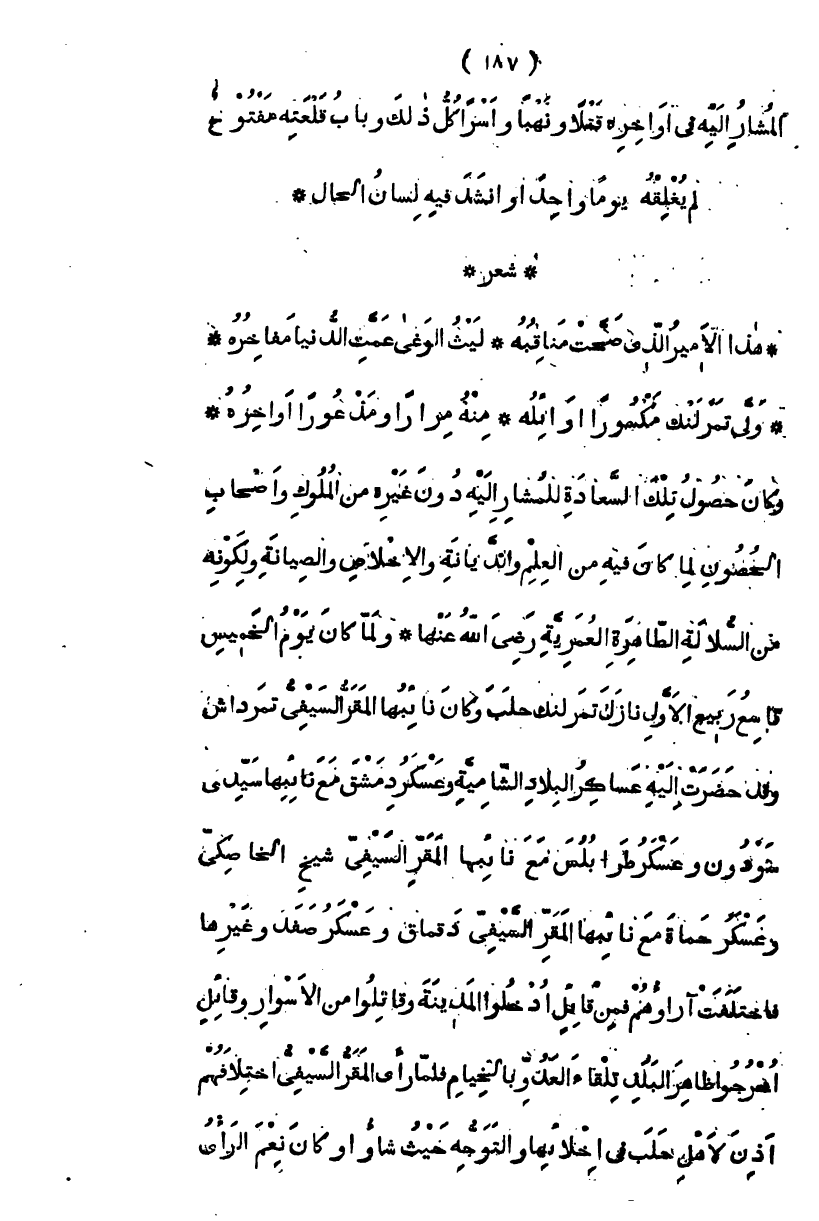 ( ١٨٧ )
المُشارُ اِلَيْهِ فى اَوَاخِرِه قَتْلًا ونَهْبًا واَسْرًا كُلُّ ذٰلكَ وبابُ قَلْعَتِه مَفْتُوْحٌ
لم يُغْلِقْهُ يومًا واحِدًا وانشَدَ فيهِ لِسانُ الحال *
* شعر *
* هٰذا الاَميرُ الّذى صَحَّتْ مَناقِبُه * لَيْثُ الوَغىٰ عَمَّتِ الدُّنيا مَفاخِرُهُ *
* وَلَّى تمرلَنْك مَكْسُورًا اوَائِلُه * مِنْهُ مِرارًا ومَذْعُورًا اَواخِرُهُ *
وكَانَ حُصُولُ تِلْكَ السَّعادَةِ للمُشارِ اِلَيْهِ دُونَ غَيْرِه من المُلُوكِ واَصْحابِ
الحُصُونِ لِما كانَ فيْهِ من العِلْمِ والدِّيانَةِ والاِخْلاصِ والصِيانَةِ ولِكَوْنِه
من السُّلالَةِ الطّاهِرَةِ العُمَرِيَّةِ رَضِىَ اللهُ عَنْها * ولَمّا كانَ يَوْمُ الخَمِيسِ
تاسِعُ رَبيعِ الاَوَّلِ نازَلَ تمرلنك حلَبَ وكَانَ نائِبُها المَقَرُّ السَيْفِىُّ تمرداش
وقد حَضَرَتْ اِلَيْهِ عَساكِرُ البِلادِ الشّامِيَّةِ وعَسْكَرُ دِمَشْقَ مَعَ نائِبِها سَيِّدِى
سُودُون وعَسْكَرُ طَرابُلُسَ مَعَ نائِبِها المَقَرِّ السَيْفِىِّ شيخ الخاصِكىّ
وعَسْكَرُ حَماةَ مَعَ نائِبِها المَقَرِّ السَّيْفِىِّ دقماق وعَسْكَرُ صَفَد وغَيْرِها
فاخْتَلَفَتْ آراؤُهُمْ فمِنْ قائِلٍ اُدْخُلُوا المَدينَةَ وقاتِلُوا من الاَسْوارِ وقائِلٍ
اُخْرُجُوا ظاهِرَ البَلَدِ تِلْقاءَ العَدُوِّ بالخِيامِ فلمّا رأَى المَقَرُّ السَّيْفِىُّ اخْتِلافَهُمْ
اَذِنَ لاَهْلِ حَلَبَ فى اِخْلائِها والتَوَجُّهِ حَيْثُ شاؤُا وكانَ نِعْمَ الرَأْىُ